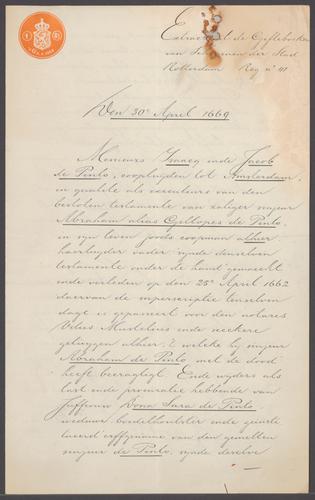 Extract uit de Giftboeken
van Schepenen der Stad
Rotterdam Reg nº 41
Den 30e April 1669
Monsieurs Isaacq ende Jacob
de Pinto, coopluyden tot Amsterdam,
in qualite als executeurs van den
besloten testamente van zaliger mijnr
Abraham alias Gillopes de Pinto,
in zyn leven joods coopman alhier
haerluyder vader, zynde denselven
testamente onder de hand gemaeckt
ende verleden op den 25e April 1662
daervan de superscriptie tenselven
dage is gepasseert voor den notaris
Vitus Mustelius ende seeckere
getuygen alhier, 't welcke by mijnr
Abraham de Pinto met de dood
heeft becragtigt Ende wyders als
last ende procuratie hebbende van
Juffrouw Dona Sara de Pinto,
weduwe, boedelhoutster ende geinsti
tueerd erffgename van den gemelten
mijnr de Pinto, zynde deselve